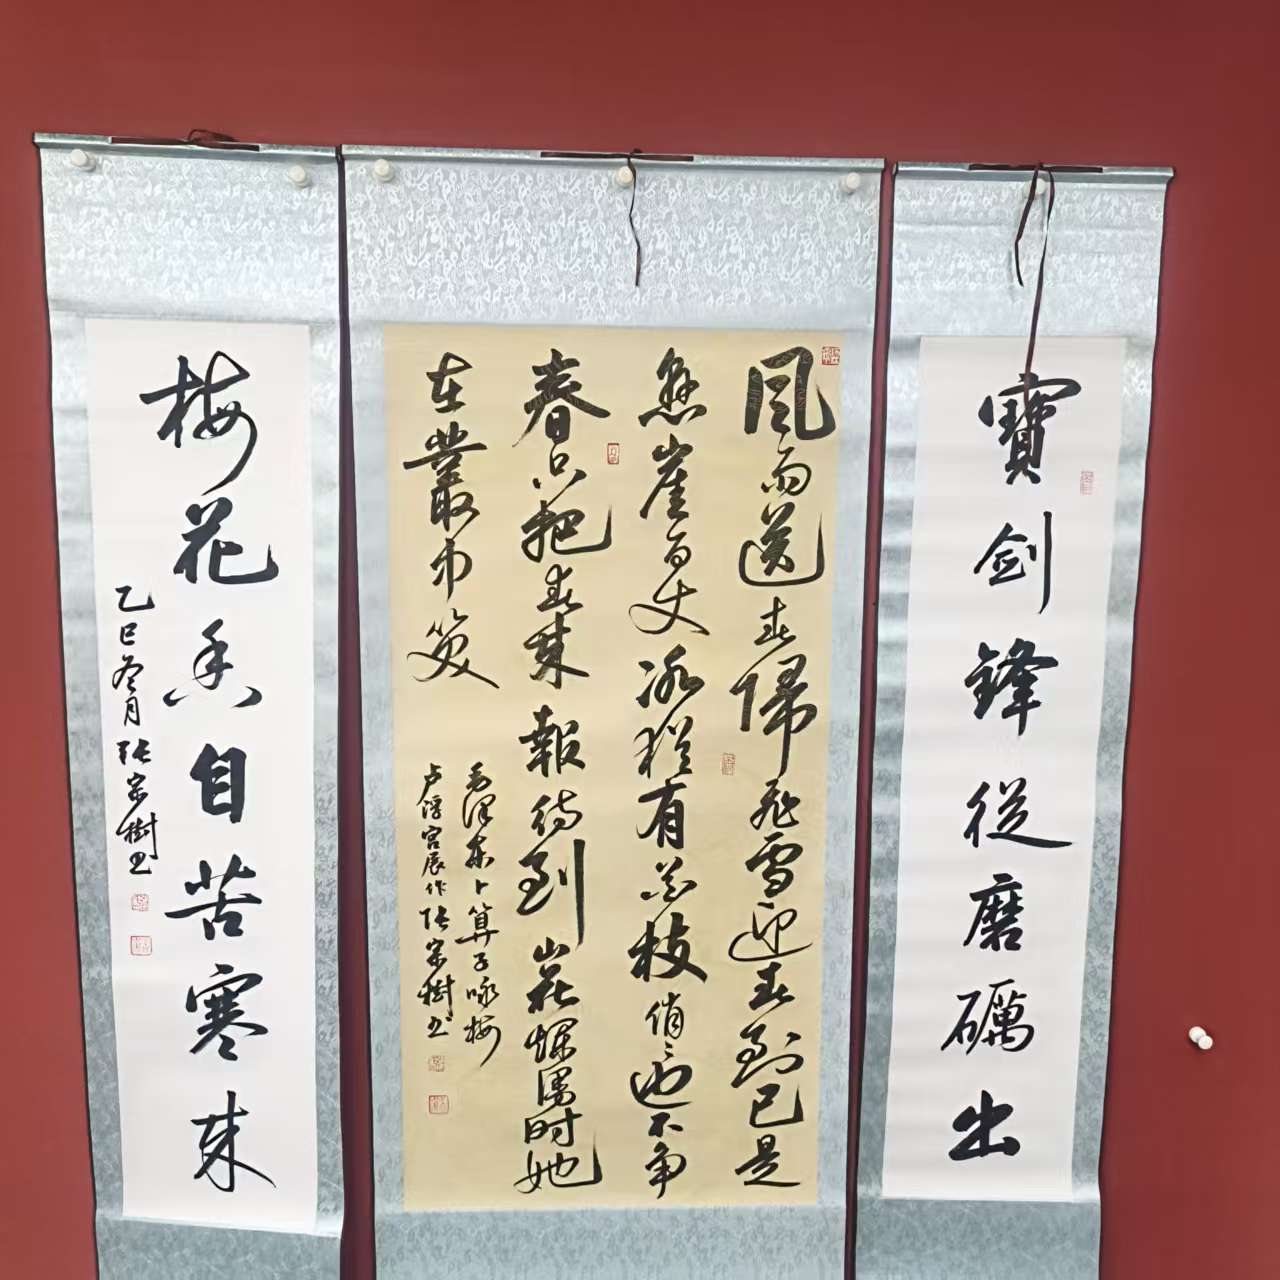 寶剑鋒從磨礪出
风雨送春歸飛雪迎春到已是
悬崖百丈冰猶有花枝俏々也不争
春只把春来報待到山花爛漫时她
在叢中笑
毛泽东卜算子咏梅
卢浮宫展作张宗樹书
梅花香自苦寒来
乙巳冬月张宗樹书